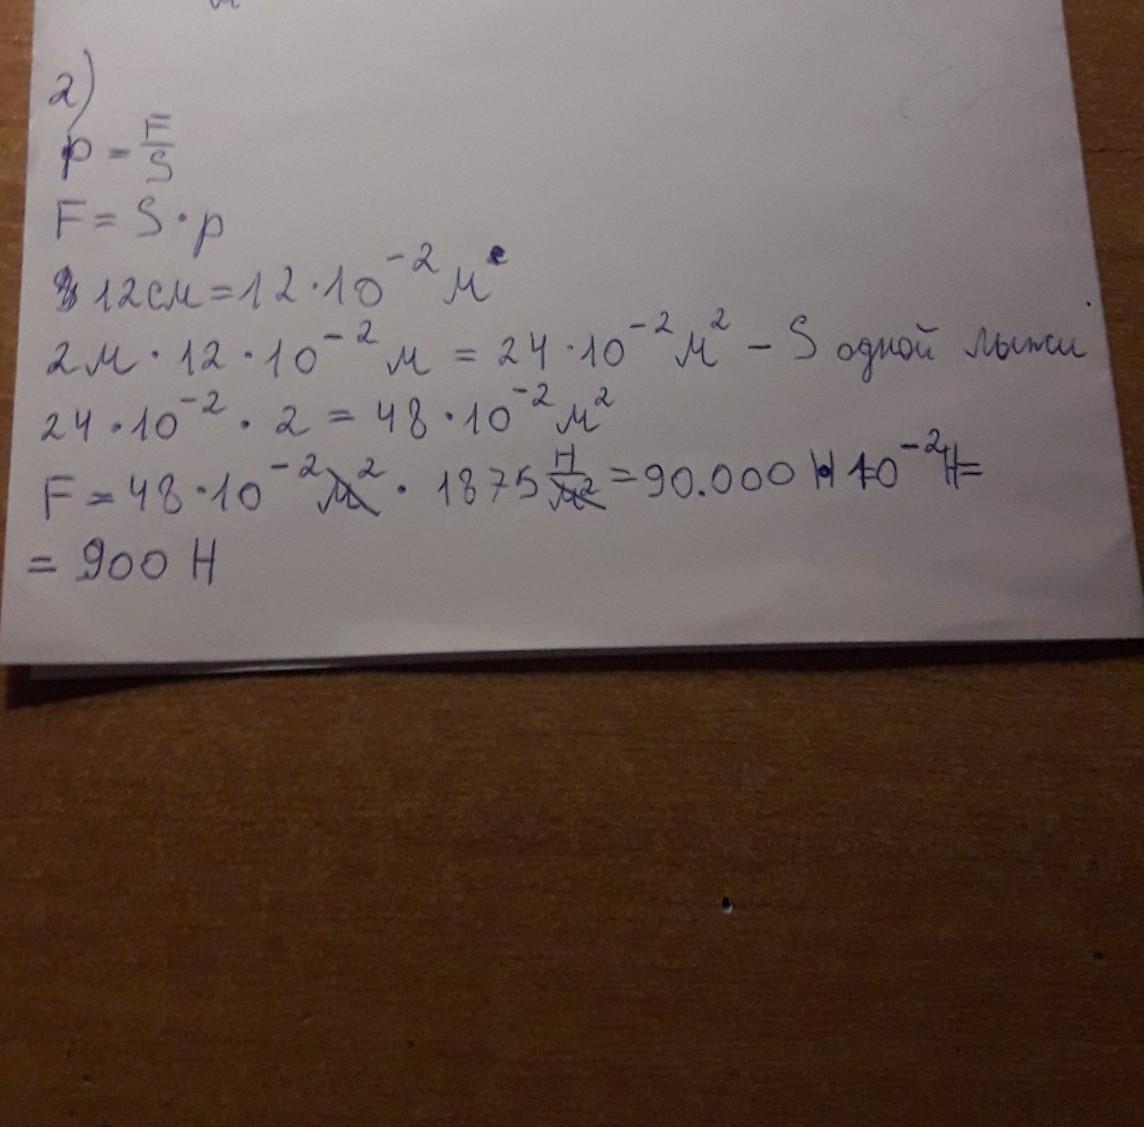 2)
p = F/S
F = S · p
12см = 12 · 10⁻² м
2м · 12 · 10⁻² м = 24 · 10⁻² м² – S одной лыжи
24 · 10⁻² · 2 = 48 · 10⁻² м²
F = 48 · 10⁻² м² · 1875 Н/м² = 90.000 · 10⁻² Н =
= 900 Н